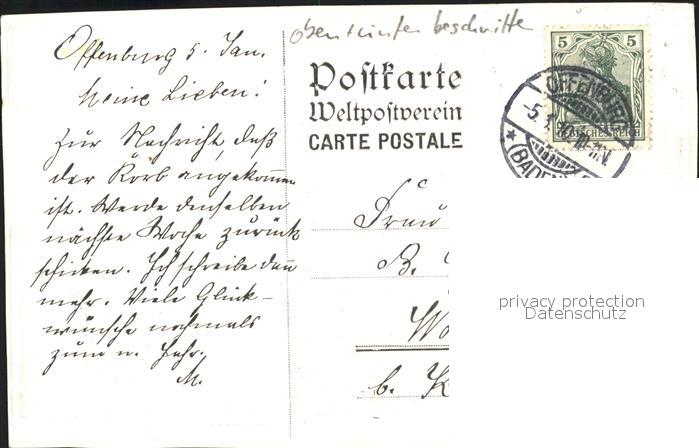 oben + unten beschnitten
Offenburg 5. Jan.
Meine Lieben!
Zur Nachricht, daß
der Korb angekommen
ist. Werde denselben
nächste Woche zurück
schicken. Ich schreibe dann
mehr. Viele Glück-
wünsche nochmals
zum n. Jahr.
M.
Postkarte
Weltpostverein
CARTE POSTALE
5 5
DEUTSCHES REICH
OFFENBURG
-5.1.
(BADEN)
Frau
B.
b. K
privacy protection
Datenschutz